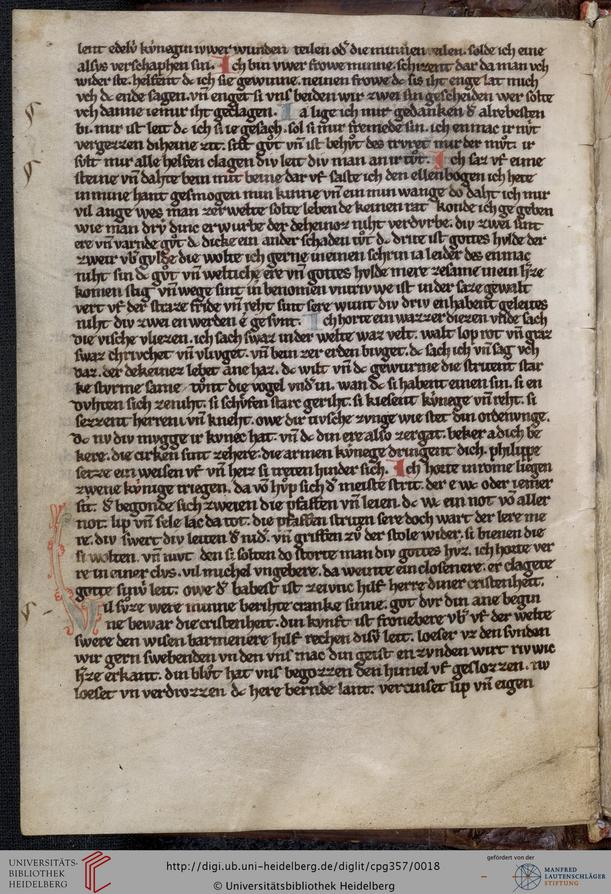 lent edelv kvnegin iwer wunden teilen od' die minnen teilen. solde ich eine
alsvs verschaphen sin. Ich bin vwer frowe minne. schizent dar da man vch
wider ste. helfent dc ich sie gewinne. neinen frowe dc sis iht enge lat mich
vch dc ende sagen. vn̄ enget si vns beiden wir zwei sin gescheiden wer solte
vch danne iemir iht geclagen. Ia lige ich mir gedanken d' alrebesten
bi. mir ist leit dc ich si ie gesach. sol si mir fremede sin. ich enmac ir niht
vergezzen diheine zit.
mir alle helfen clagen div leit div man an ir tvt. Ich saz vf eime
steine vn̄ dahte bein mit beine dar vf saste ich den ellenbogen ich hete
in mine hant gesmogen min kinne vn̄ ein min wange do daht ich mir
vil ange wes man zer welte solte leben de keinen rat konde ich ge geben
wie man driv dinc erwurbe der deheinoz niht verdvrbe. div zwei sint
ere vn̄ varnde gvt dc dicke ein ander schaden tvt dc drite ist gottes hvlde der
zweir vb' gvlde die wolte ich gerne in einen schrin ia leider des enmac
niht sin dc gvt vn̄ weltiche ere vn̄ gottes hvlde mere zesame in ein h'ze
komen stig vn̄ wege sint in benomen vntriwe ist in der saze gewalt
vert vf der straze fride vn̄ reht sint sere wunt div driv enhabent geleites
niht div zwei en werden e gesvnt. Ich horte ein wazzer diezen vn̄de sach
die vische vliezen. ich sach swaz in der welte waz velt. walt lop rot vn̄ graz
swaz chrivchet vn̄ vlivget. vn̄ bein zer erden bivget. dc sach ich vn̄ sag vch
daz. der dekeinez lebet ane haz. dc wilt vn̄ dc gewurme die stritent star
ke stvrme same tvnt die vogel vnd' in. wan dc si habent einen sin. si en
dvhten sich zeniht. si schvfen starc geriht. si kiesent kvnege vn̄ reht. si
sezzent herren vn̄ kneht. owe dir tivsche zvnge wie stet din ordenvnge.
dc nv div mvgge ir kvnec hat. vn̄ dc din ere also zergat. beker a dich be
kere. die cirken sint zehere. die armen kvnege dringent dich. philippe
setze ein weisen vf vn̄ heiz si treten hinder sich. Ich horte in rome liegen
zwene kvnige triegen. da von hvp sich d' meiste strit. der e wc oder iemer
sit. d' begonde sich zweien die pfaffen vn̄ leien. dc wc ein not vor aller
not. lip vn̄ sele lac da tot. die pfaffen striten sere doch wart der leie me
re. div swert div leiten d' nid'. vn̄ griffen zv der stole wider. si bienen die
si wolten. vn̄ niwt den si solten do storte man div gottes hvz. ich horte ver
re in einer clvs. vil michel vngebere. da weinte ein closenere. er clagete
gotte sinv leit. owe d' babest ist ze ivnc hilf herre diner cristenheit.
Vil svze were minne berihte cranke sinne. got dvr din ane begin
ne bewar die cristenheit. din kvnft ist fronebere vb' vf der welte
swere den wisen barmenere hilf rechen disv leit. loeser vz den svnden
wir gern swebenden vnden vns mac din geist enzvnden wirt riwic
h'ze erkant. din blvt hat vns begozzen den himel vf geslozzen. nv
loeset vn verdrozzen dc here bernde lant. vercinset lip vn̄ eigen
UNIVERSITÄTS-
BIBLIOTHEK
HEIDELBERG
http://digi.ub.uni-heidelberg.de/diglit/cpg357/0018
© Universitätsbibliothek Heidelberg
gefördert von der
MANFRED
LAUTENSCHLÄGER
STIFTUNG